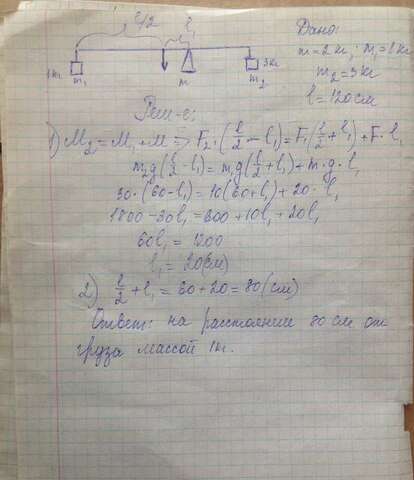 l/2
l₁
1кг
m₁
m
3кг
m₂
Дано:
m=2кг; m₁=1кг
m₂=3кг
l=120см
Реш-е:
1) M₂=M₁+M ⇒ F₂·(l/2-l₁)=F₁(l/2+l₁)+F·l₁
m₂g(l/2-l₁)=m₁g(l/2+l₁)+m·g·l₁
30·(60-l₁)=10(60+l₁)+20·l₁
1800-30l₁=600+10l₁+20l₁
60l₁=1200
l₁=20(см)
2) l/2+l₁=60+20=80(см)
Ответ: на расстоянии 80 см от
груза массой 1кг.